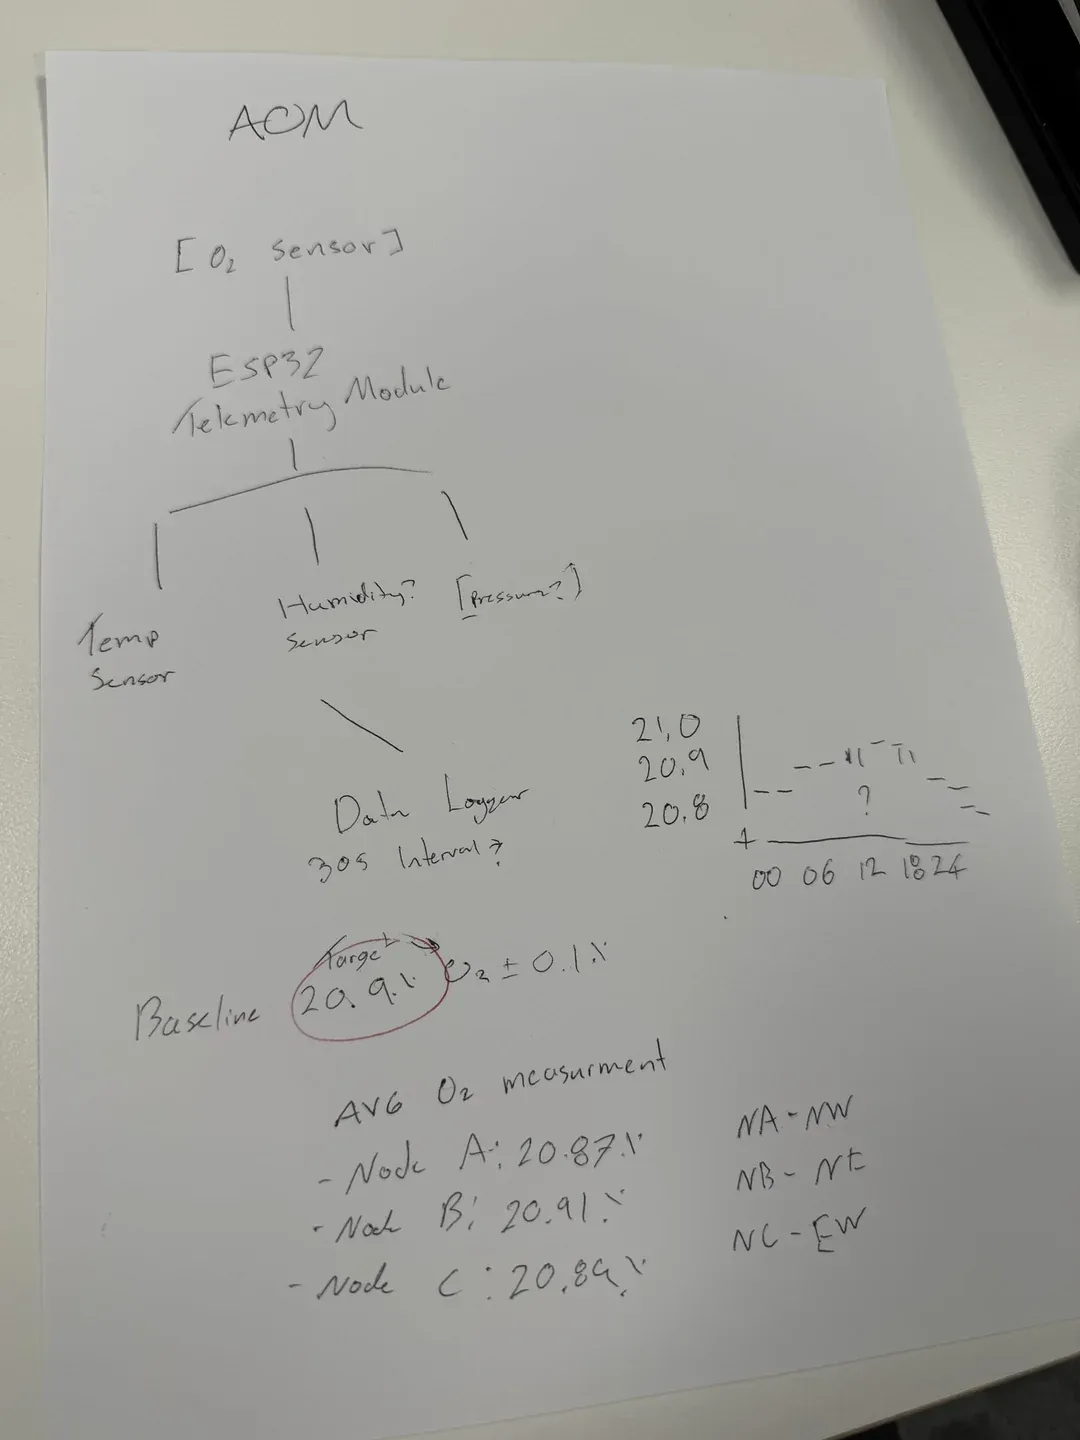 AOM
[O₂ sensor]
ESP32
Telemetry Module
Temp
Sensor
Humidity?
Sensor
[Pressure?]
Data Logger
30s Interval?
21,0
20.9
20.8
?
00 06 12 18 24
Target
Baseline 20.9% O₂ ± 0.1%
AVG O₂ measurment
- Node A: 20.87%
- Node B: 20.91%
- Node C: 20.89%
NA - NW
NB - NE
NC - EW